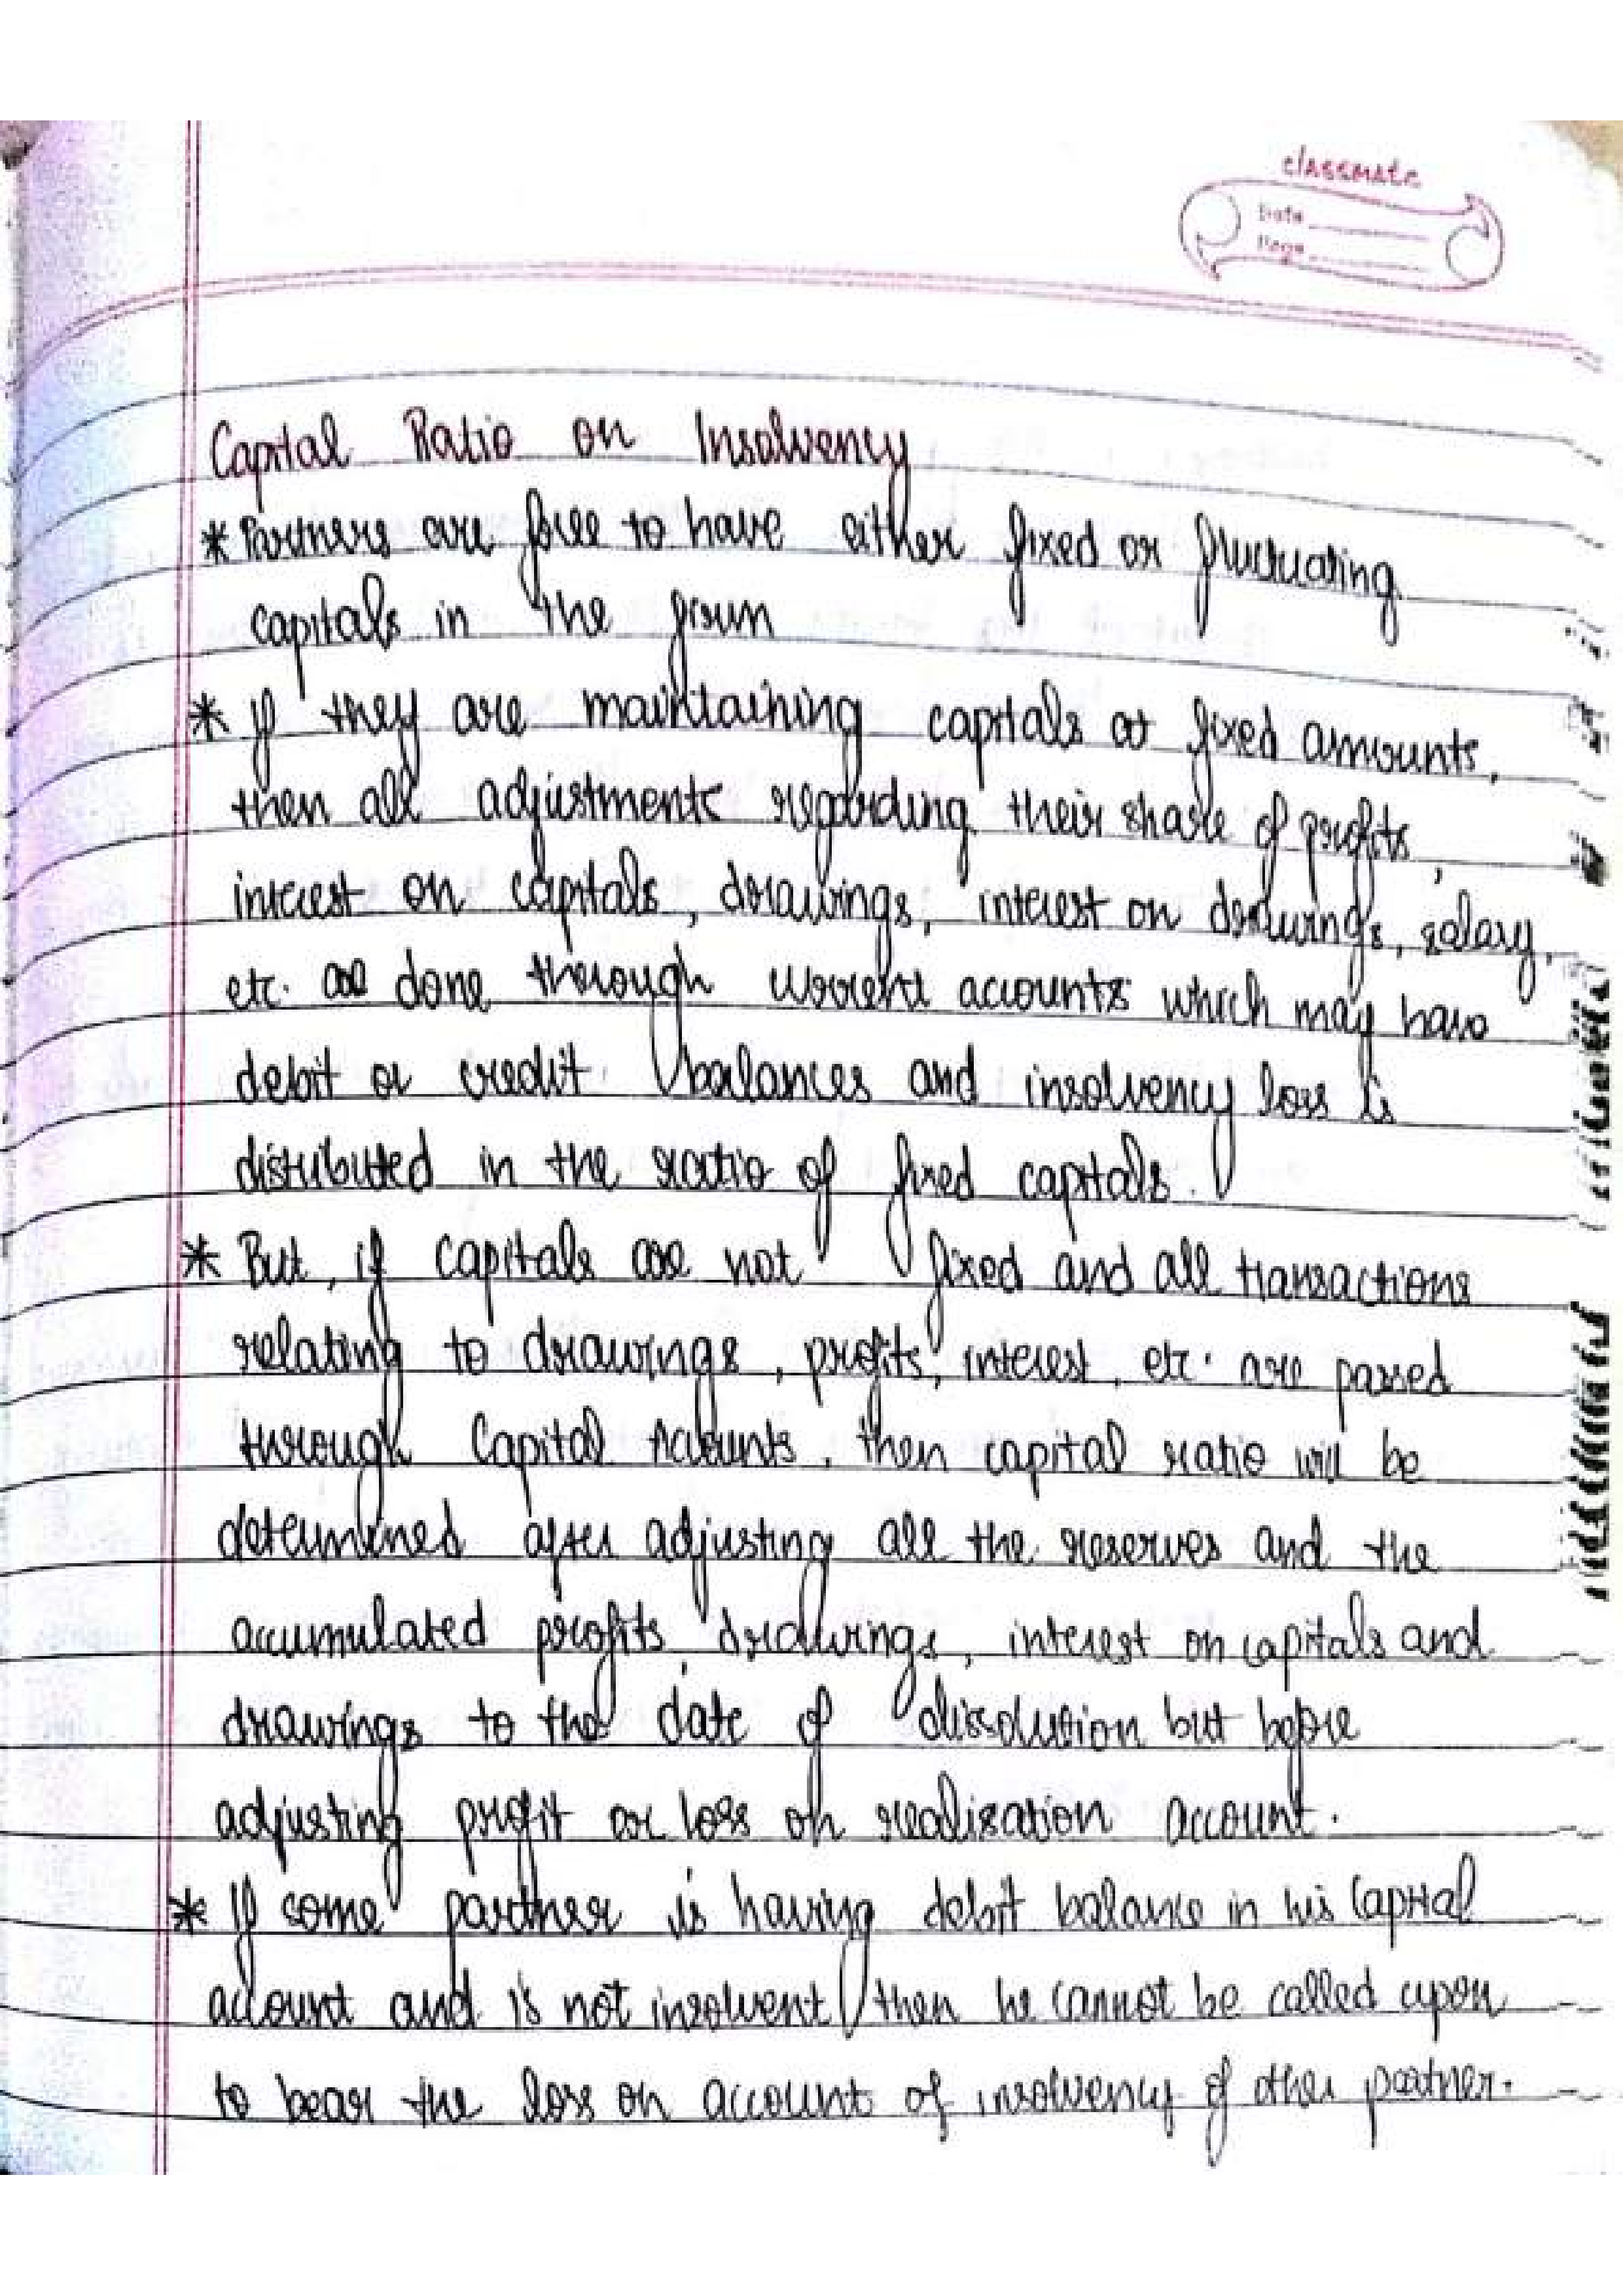 classmate
Date
Page
Capital Ratio on Insolvency
* Partners are free to have either fixed or fluctuating
capitals in the firm
* If they are maintaining capitals at fixed amounts,
then all adjustments regarding their share of profits,
interest on capitals, drawings, interest on drawings, salary,
etc. are done through current accounts which may have
debit or credit balances and insolvency loss is
distributed in the ratio of fixed capitals.
* But, if capitals are not fixed and all transactions
relating to drawings, profits, interest, etc. are passed
through Capital Accounts, then capital ratio will be
determined after adjusting all the reserves and the
accumulated profits, drawings, interest on capitals and
drawings to the date of dissolution but before
adjusting profit or loss on realisation account.
* If some partner is having debit balance in his Capital
account and is not insolvent then he cannot be called upon
to bear the loss on account of insolvency of other partner.